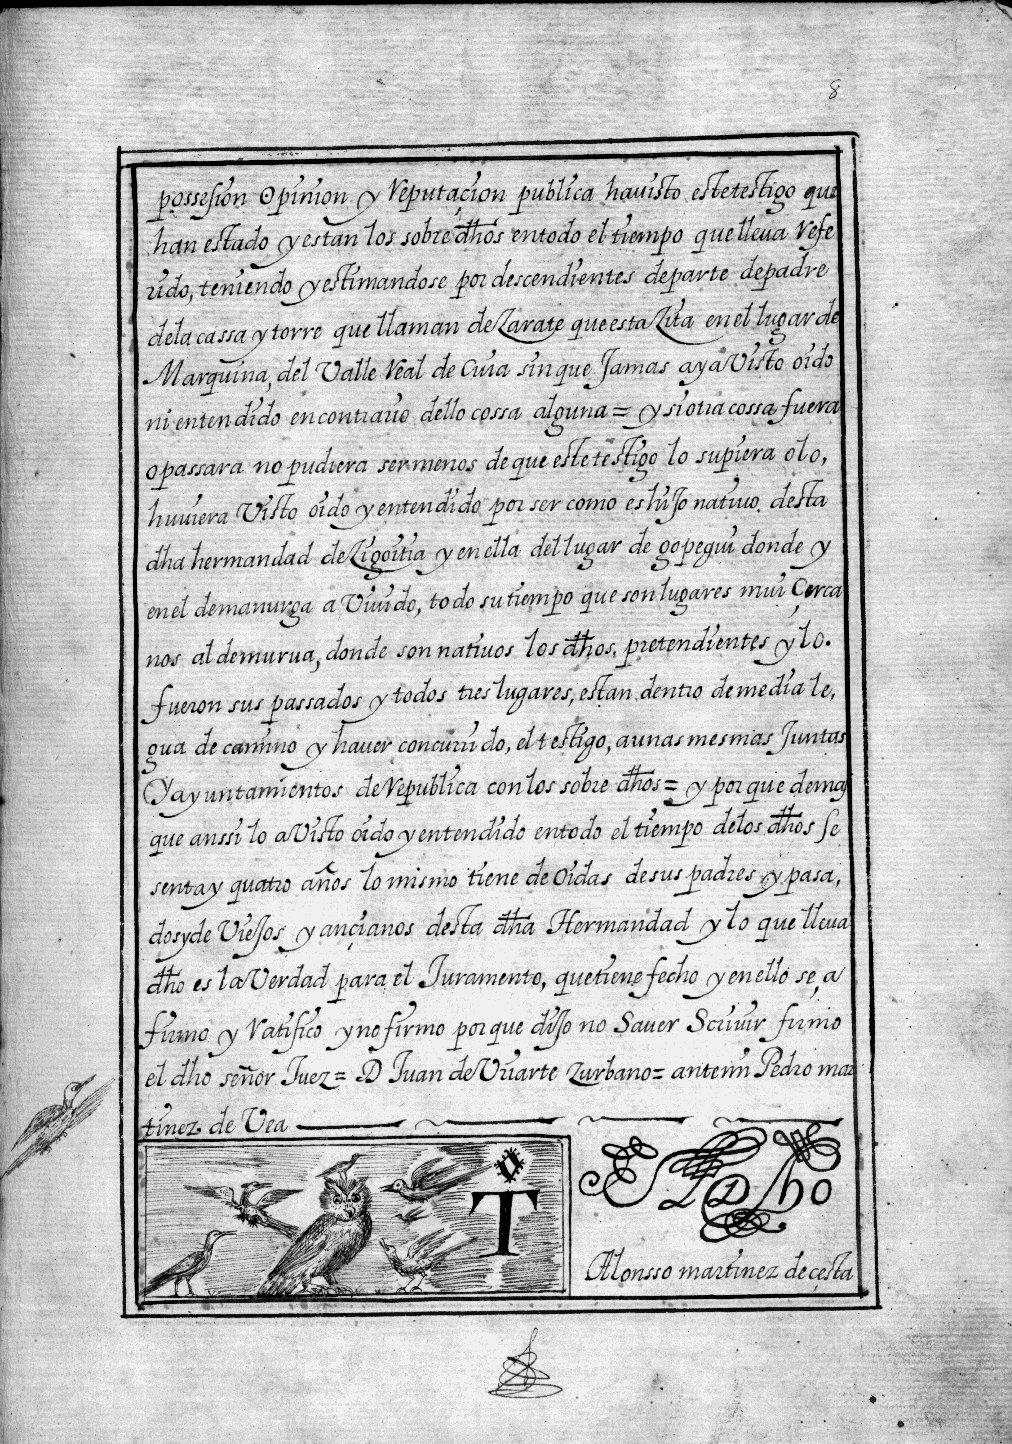 8
possesion Opinion y Reputaçion publica hauisto estetestigo que
han estado y estan los sobre dhos entodo el tiempo que lleua Refe
rido, teniendo y estimandose por descendientes departe depadre
dela cassa y torre que llaman de Zarate que esta Zita en el lugar de
Marquina, del Valle Real de Cuia sin que Jamas aya Visto oido
ni entendido en contrario dello cossa alguna = y si otra cossa fuera
o passara no pudiera ser menos de que este testigo lo supiera o lo,
huuiera Visto oido y entendido por ser como es hijo natiuo desta
dha hermandad de Zigoitia y en ella del lugar de gopegui donde y
en el demanurga a Viuido, todo su tiempo que son lugares mui Çerca
nos al demurua, donde son natiuos los dhos. pretendientes y lo.
fueron sus passados y todos tres lugares, estan dentro de media le,
gua de camino y hauer concurrido, el testigo, a unas mesmas Juntas
Y ayuntamientos de Republica con los sobre dhos = y porque demas
que anssi lo a Visto oido y entendido entodo el tiempo delos dhos se
senta y quatro años lo mismo tiene de oidas de sus padres y pasa,
dos y de Viejos y ançianos desta dha Hermandad y lo que lleua
dho es la Verdad para el Juramento, que tiene fecho y en ello se, a
firmo y Ratifico y no firmo porque dijo no Sauer Scriuir firmo
el dho señor Juez = D Juan de Uriarte Zurbano = antemi Pedro mar
tinez de Vea
T
Alonsso martinez de çesta